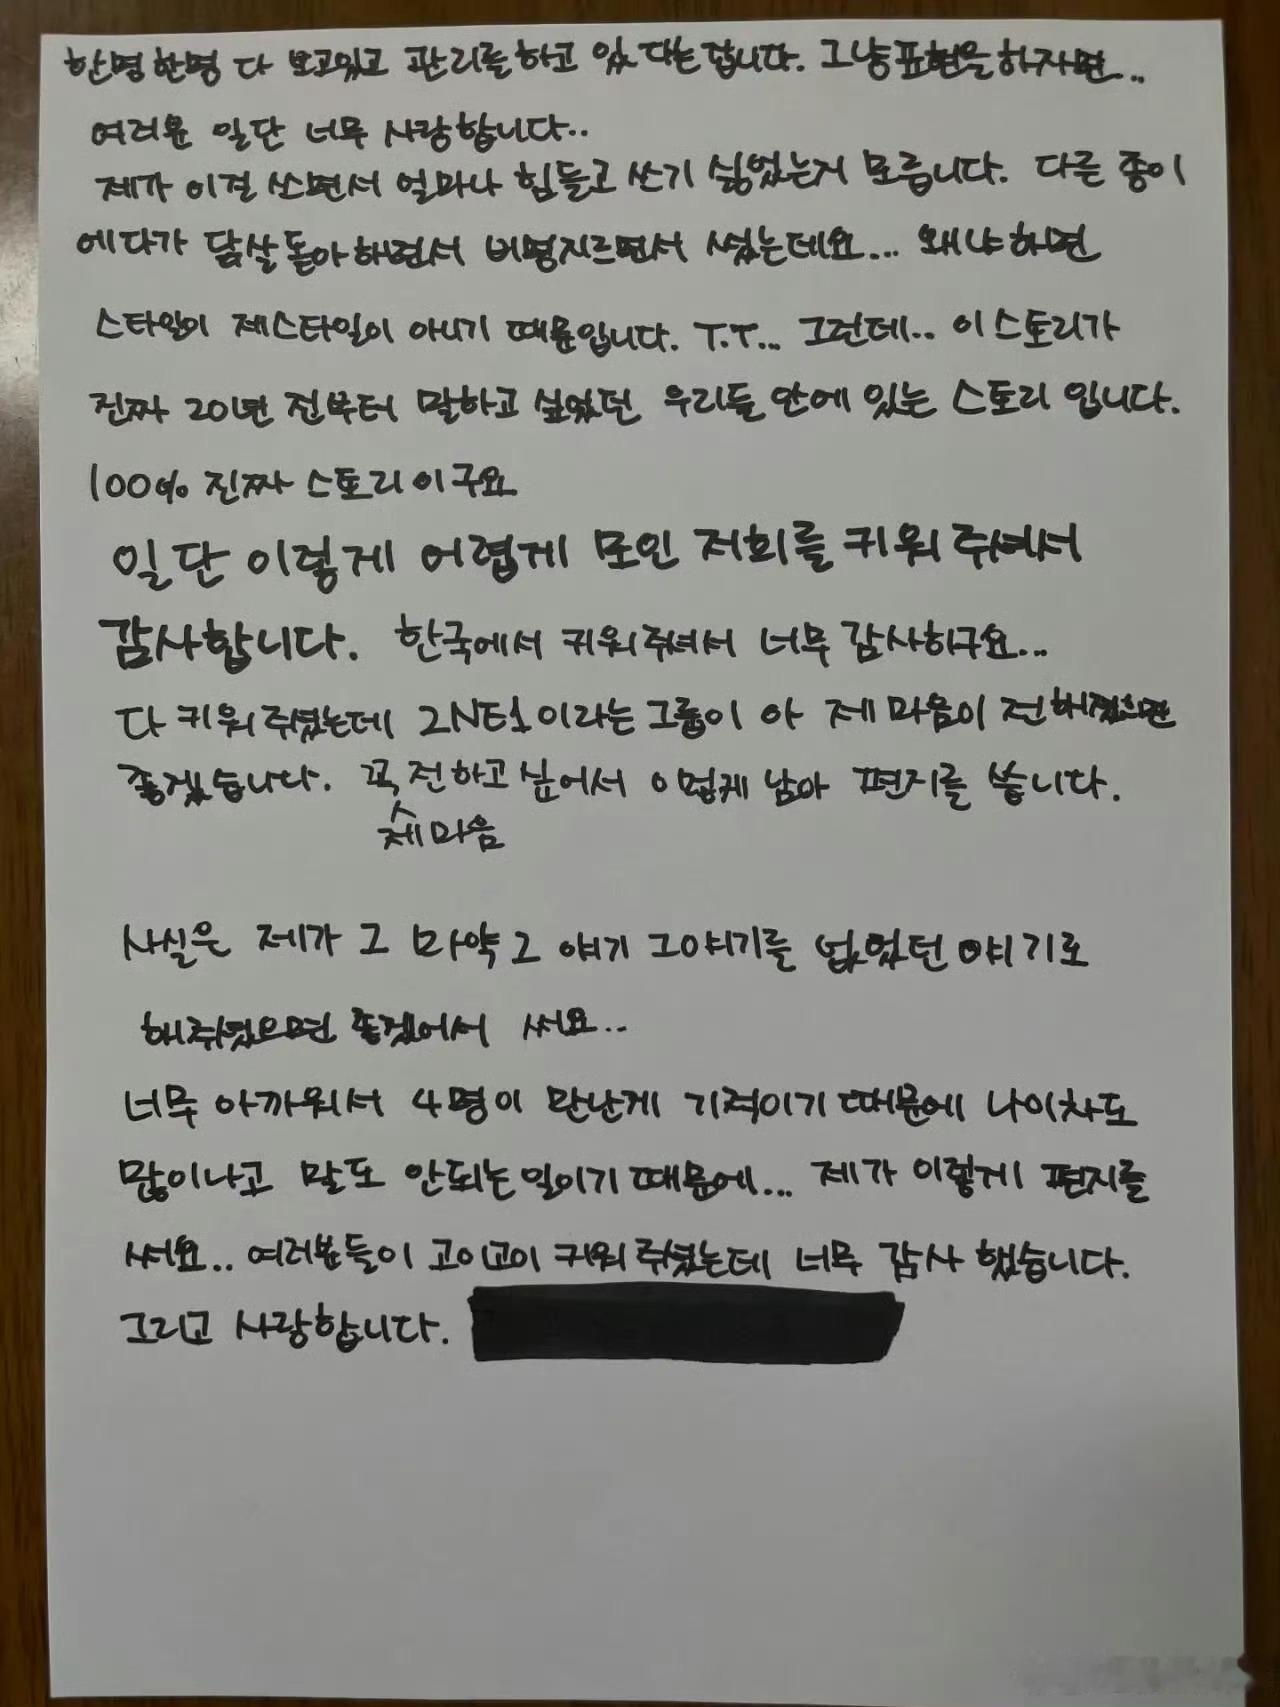 한명한명 다 보고있고 관리를하고 있다는겁니다. 그냥표현을하자면...
여러분 일단 너무 사랑합니다..
제가 이걸 쓰면서 얼마나 힘들고 쓰기 싫었는지 모릅니다. 다른 종이
에다가 닭살돋아하면서 비명지르면서 썼는데요... 왜냐하면
스타일이 제스타일이 아니기 때문입니다. T.T... 그런데.. 이스토리가
진짜 20년 전부터 말하고 싶었던 우리들 안에 있는 스토리 입니다.
100% 진짜 스토리이구요
일단 이렇게 어렵게 모인 저희를 키워주셔서
감사합니다. 한국에서 키워주셔서 너무 감사하구요...
다 키워주셨는데 2NE1이라는그룹이 아 제 마음이 전해졌으면
좋겠습니다. 꼭 전하고싶어서 이렇게 남아 편지를 씁니다.
제마음
사실은 제가 그 마약 그 얘기 그얘기를 없었던 얘기로
해주셨으면 좋겠어서 써요..
너무 아까워서 4명이 만난게 기적이기때문에 나이차도
많이나고 말도 안되는일이기때문에... 제가 이렇게 편지를
써요.. 여러분들이 고이고이 키워주셨는데 너무 감사했습니다.
그리고 사랑합니다.